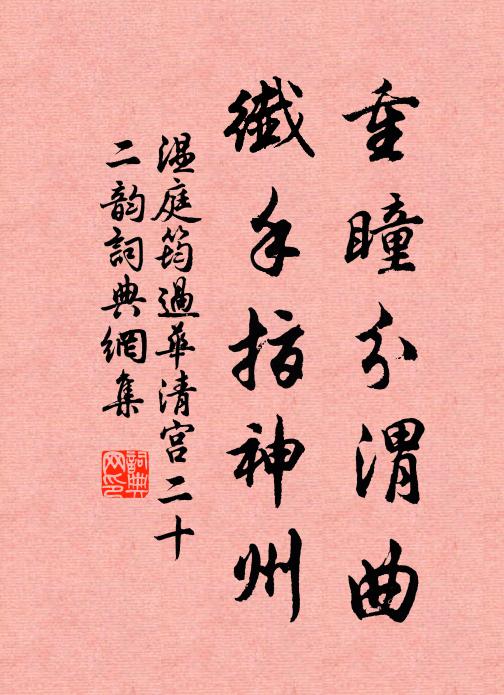 重瞳分渭曲
纖手指神州
溫庭筠過華清宮二十
二韵詞典網集
詞典网印